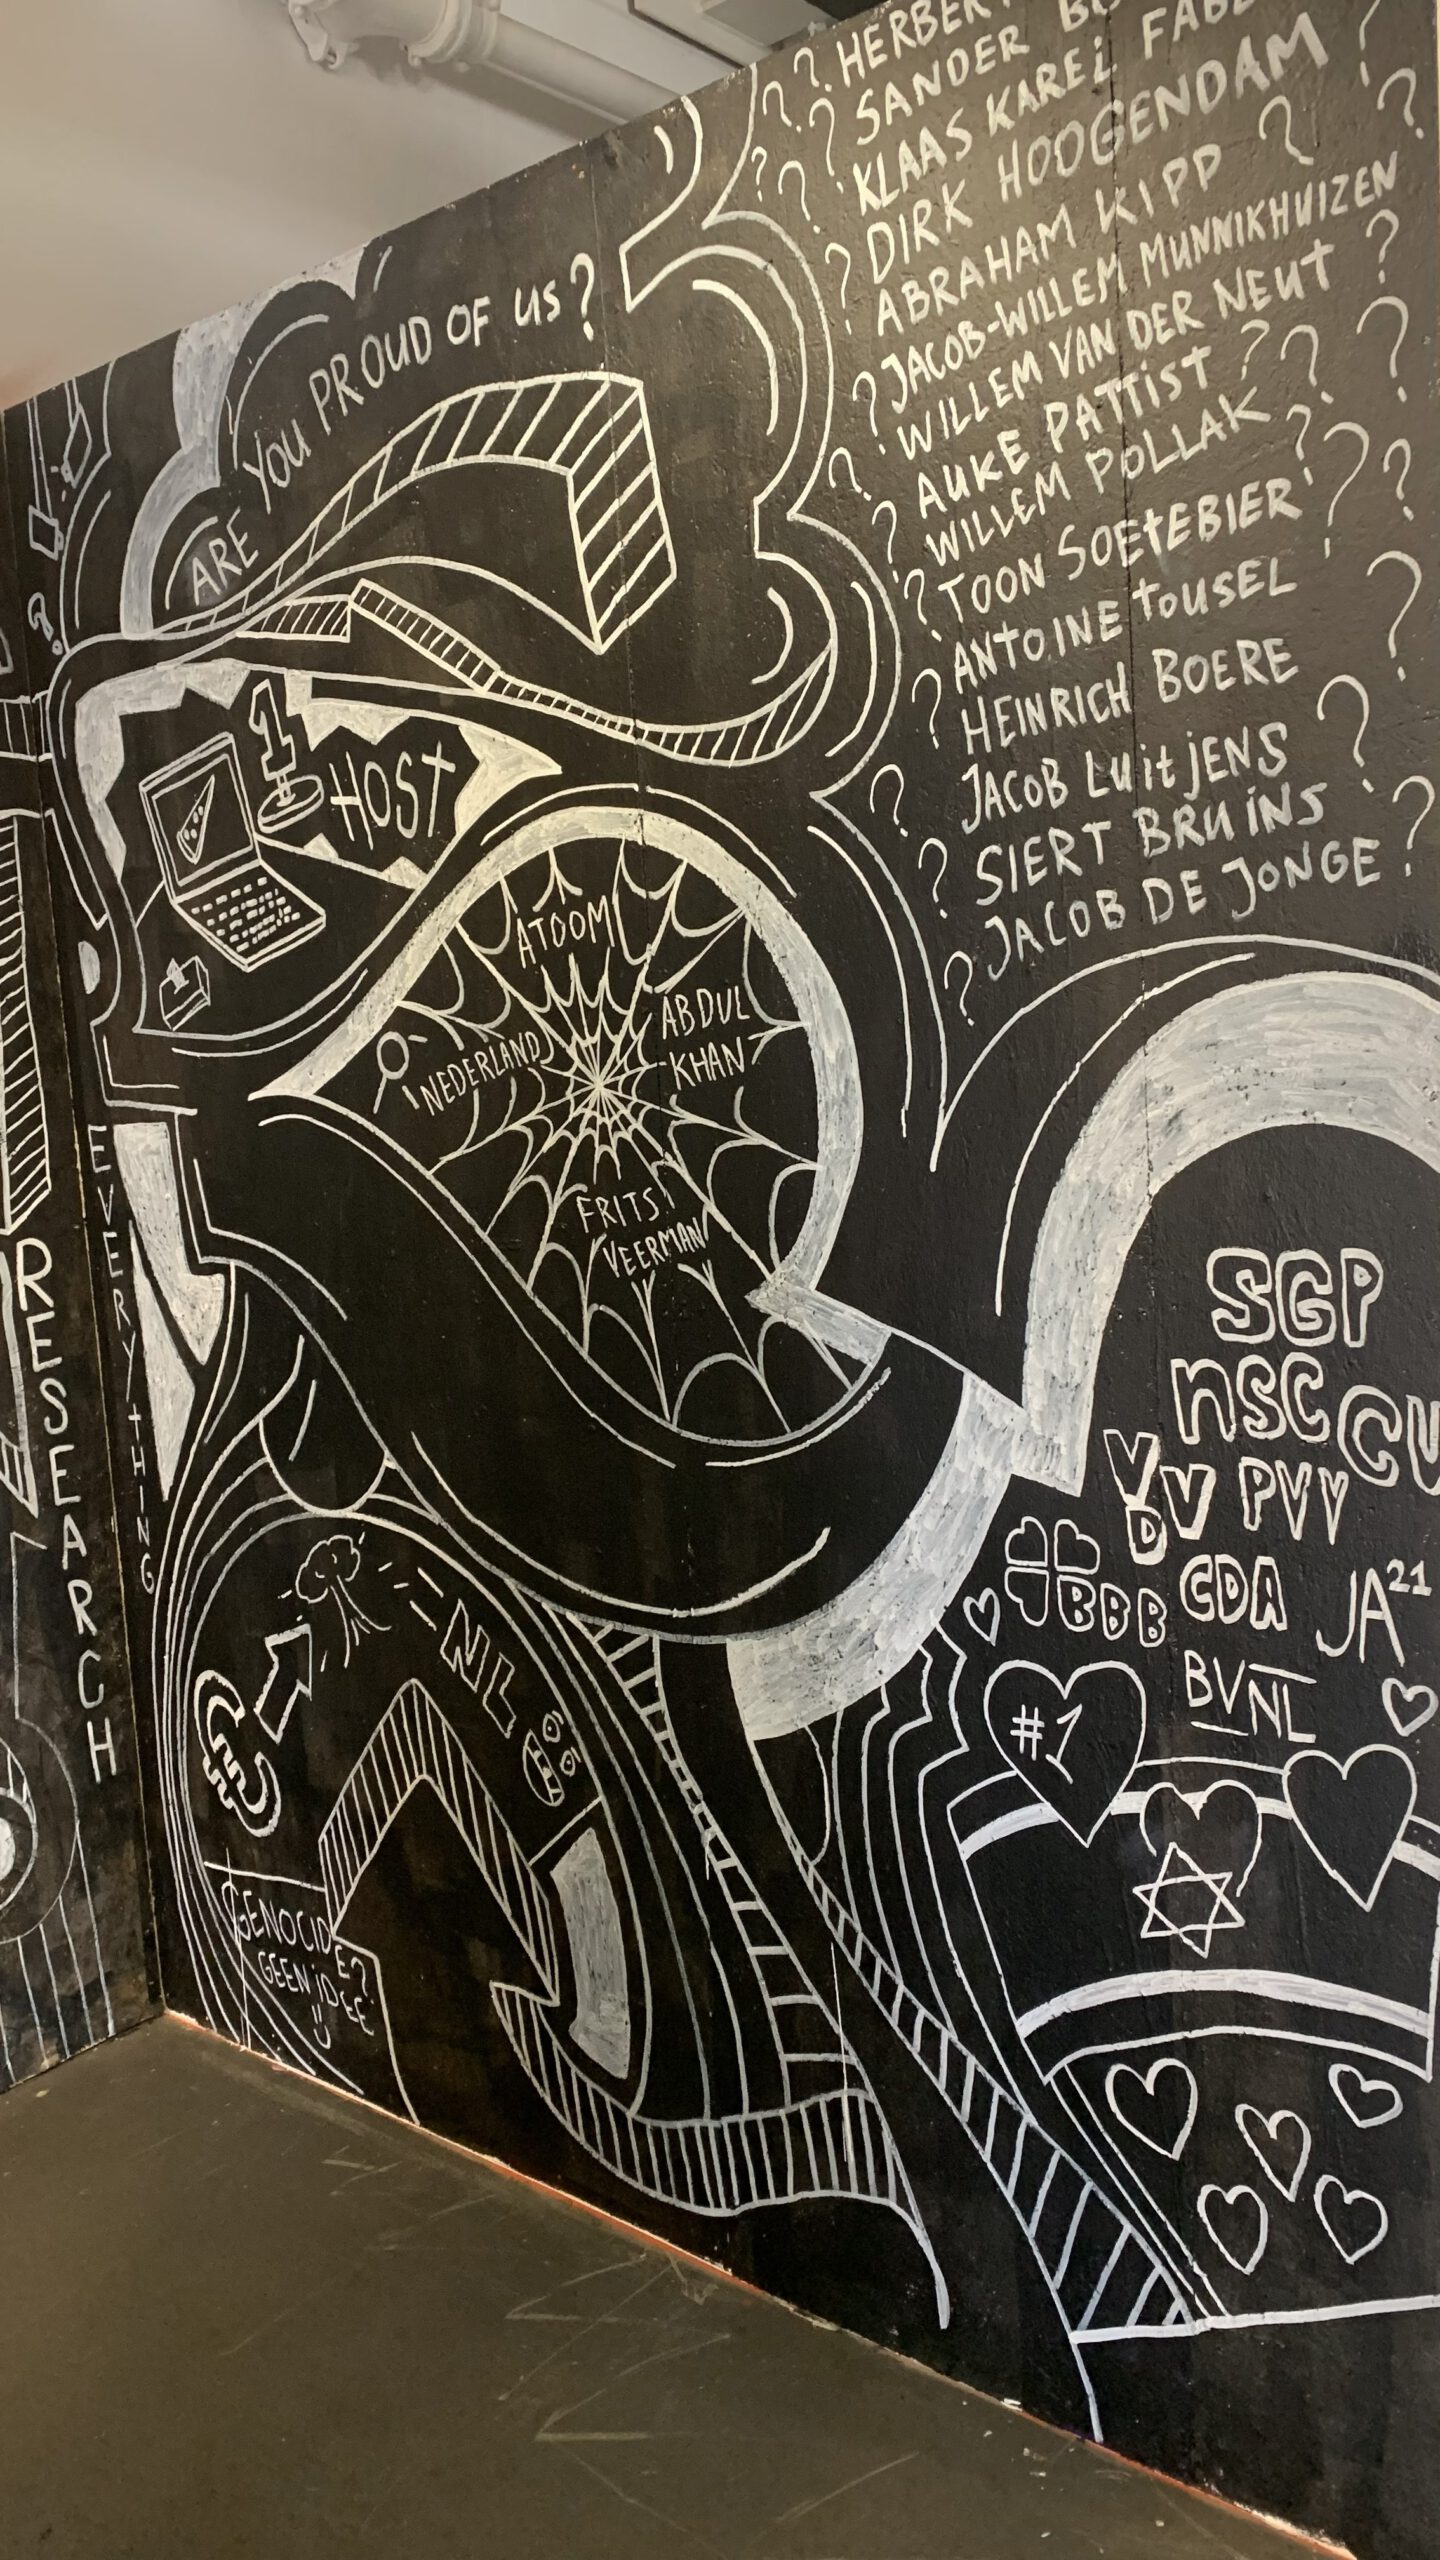 ARE YOU PROUD OF US?
SANDER
KLAAS KAREL
DIRK HOOGENDAM
ABRAHAM KIPP
JACOB-WILLEM MUNNIKHUIZEN
WILLEM VAN DER NEUT
AUKE PATTIST
WILLEM POLLAK
TOON SOETEBIER
ANTOINE TOUSEL
HEINRICH BOERE
JACOB LUITJENS
SIERT BRUINS
JACOB DE JONGE?
1
HOST
ATOOM
ABDUL
KHAN
NEDERLAND
FRITS
VEERMAN
RESEARCH
EVERYTHING
€
NL
GENOCIDE?
GEEN IDEE
SGP
NSC
VVD
PVV
BBB
CDA
JA21
BVNL
#1